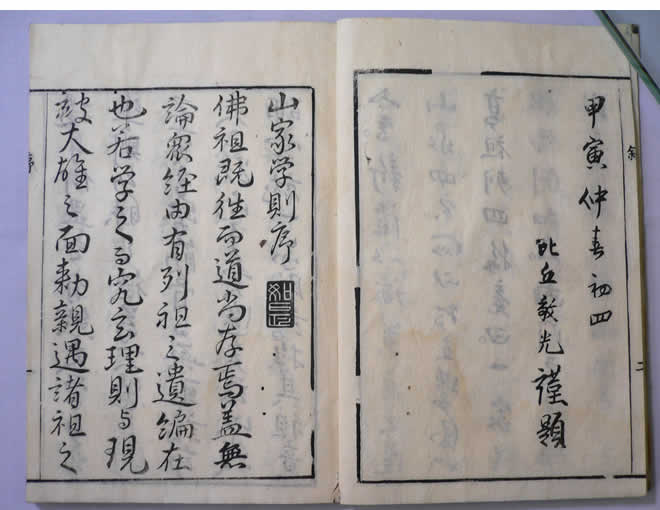 甲寅仲春初四
比丘敬光謹題
山家学則序
佛祖既往而道尚存焉蓋無
論眾經由有列祖之遺編在
也若学之究玄理則与現
被大雄之面勅親遇諸祖之